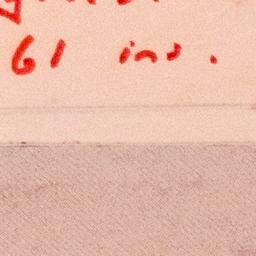 61 ins.